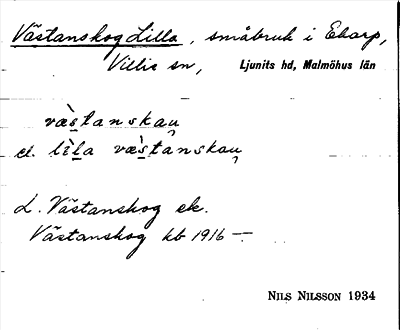 Västanskog Lilla, småbruk i Ekarp,
Villie sn, Ljunits hd, Malmöhus län
væ̀stanskaų
el. lìla væ̀stanskaų
L. Västanskog ek.
Västanskog kb 1916 —
NILS NILSSON 1934